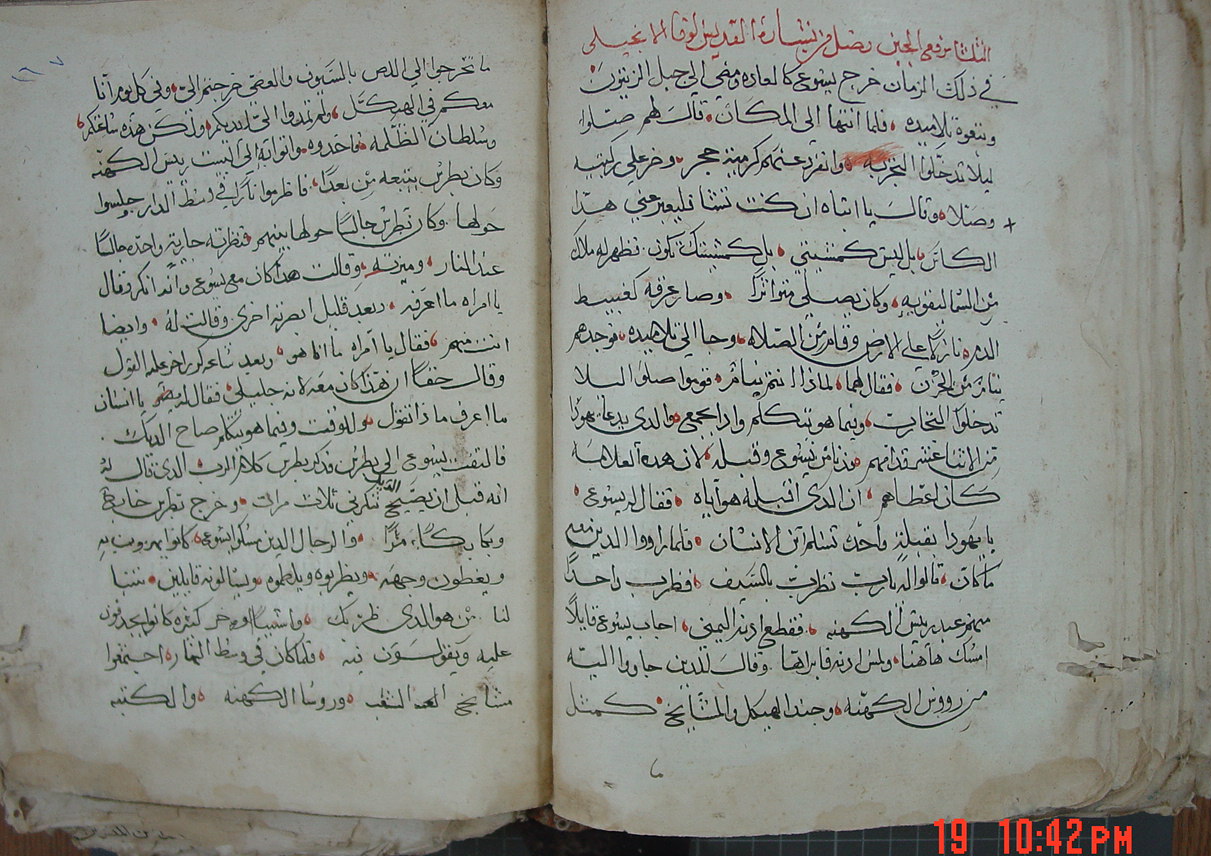 فصل من بشارة القديس لوقا الانجيلي
في ذلك الزمان خرج يسوع كالعاده ومضي الي جبل الزيتون
وتبعوه تلاميده فلما انتها الى المكان قال لهم صلوا
ليلا تدخلوا التجربه وانفرد عنهم كرمية حجر وخر علي ركبتيه
وصلا وقال يا ابتاه ان كنت تشا فليعبر عني هدا
الكاس بل ليس كمشيتي بل كمشيتك تكون فظهر له ملاك
من السما ليقويه وكان يصلي متواترا وصار عرقه كعبيط
الدم نازلا على الارض وقام من الصلاه وجا الي تلاميده فوجدهم
نيام من الحزن فقال لهما لماذا انتم نيام قوموا صلوا ليلا
تدخلوا التجارب وبينما هو يتكلم وادا بجمع والدي يدعا يهودا
من الاثنا عشر قدامهم فدنا من يسوع وقبله لان هده العلامه
كان اعطاهم ان الدي اقبله هو اياه فقال له يسوع
يا يهودا بقبلة واحدة تسلم ابن الانسان فلما راووا الدين معه
ما كان قالوا له يارب نضرب بالسيف فضرب واحدا
منهم عبد ريس الكهنه فقطع ادنه اليمنى اجاب يسوع قايلا
امسك هاهنا ولمس ادنه فابراها وقال للدين جاووا اليه
من رووس الكهنه وجند الهيكل والمشايخ كمثل
ما تخرجوا الي اللص بالسيوف والعصي خرجتم الي وفي كل يوم انا
معكم في الهيكل ولم تمدوا الي ايديكم ولكن هده ساعتكم
وسلطان الظلمه فاخدوه واتوا به الى بيت ريس الكهنه
وكان بطرس يتبعه من بعدا فاضرموا نارا في وسط الدار وجلسوا
حولها وكان بطرس جالسا حولها بينهم فنظرته جاريه واحده جالسا
عند النار وميزته وقالت هدا كان مع يسوع وانه انكر وقال
يا امراه ما اعرفه وبعد قليل ابصرته اخرى وقالت له وايضا
انت منهم فقال يا امراه ما انا هو وبعد ساعه كرر اخر عليه القول
وقال حقا ان هدا كان معه لانه جليلي فقال له بطرس يا انسان
ما اعرف ما ذا تقول وللوقت وبينما هو يتكلم صاح الديك
فالتفت يسوع الى بطرس فدكر بطرس كلام الرب الدي قال له
انه قبل ان يصيح الديك تنكرني ثلاث مرات وخرج بطرس خارجا
وبكا بكا مرا والرجال الدين مسكوا يسوع كانوا يهزون به
ويغطون وجهه ويضربوه ويلطموه ويسالونه قايلين تنبا
لنا من هو الدي ضربك واشيا اخر كثيره كانوا يجدفون
عليه ويقولون فيه فلما كان في وسط النهار اجتمعوا
مشايخ الشعب وروسا الكهنه والكتبه
19 10:42 PM